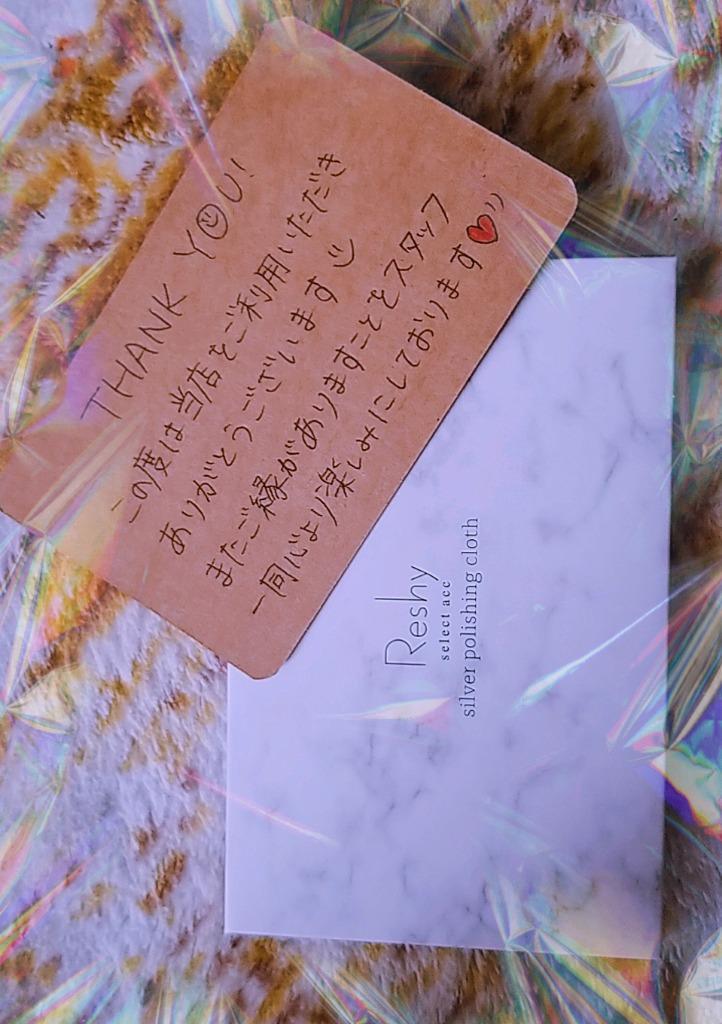 THANK YOU!
この度は当店をご利用いただき
ありがとうございます
またご縁がありますことをスタッフ
一同心より楽しみにしております
Reshy
select acc
silver polishing cloth